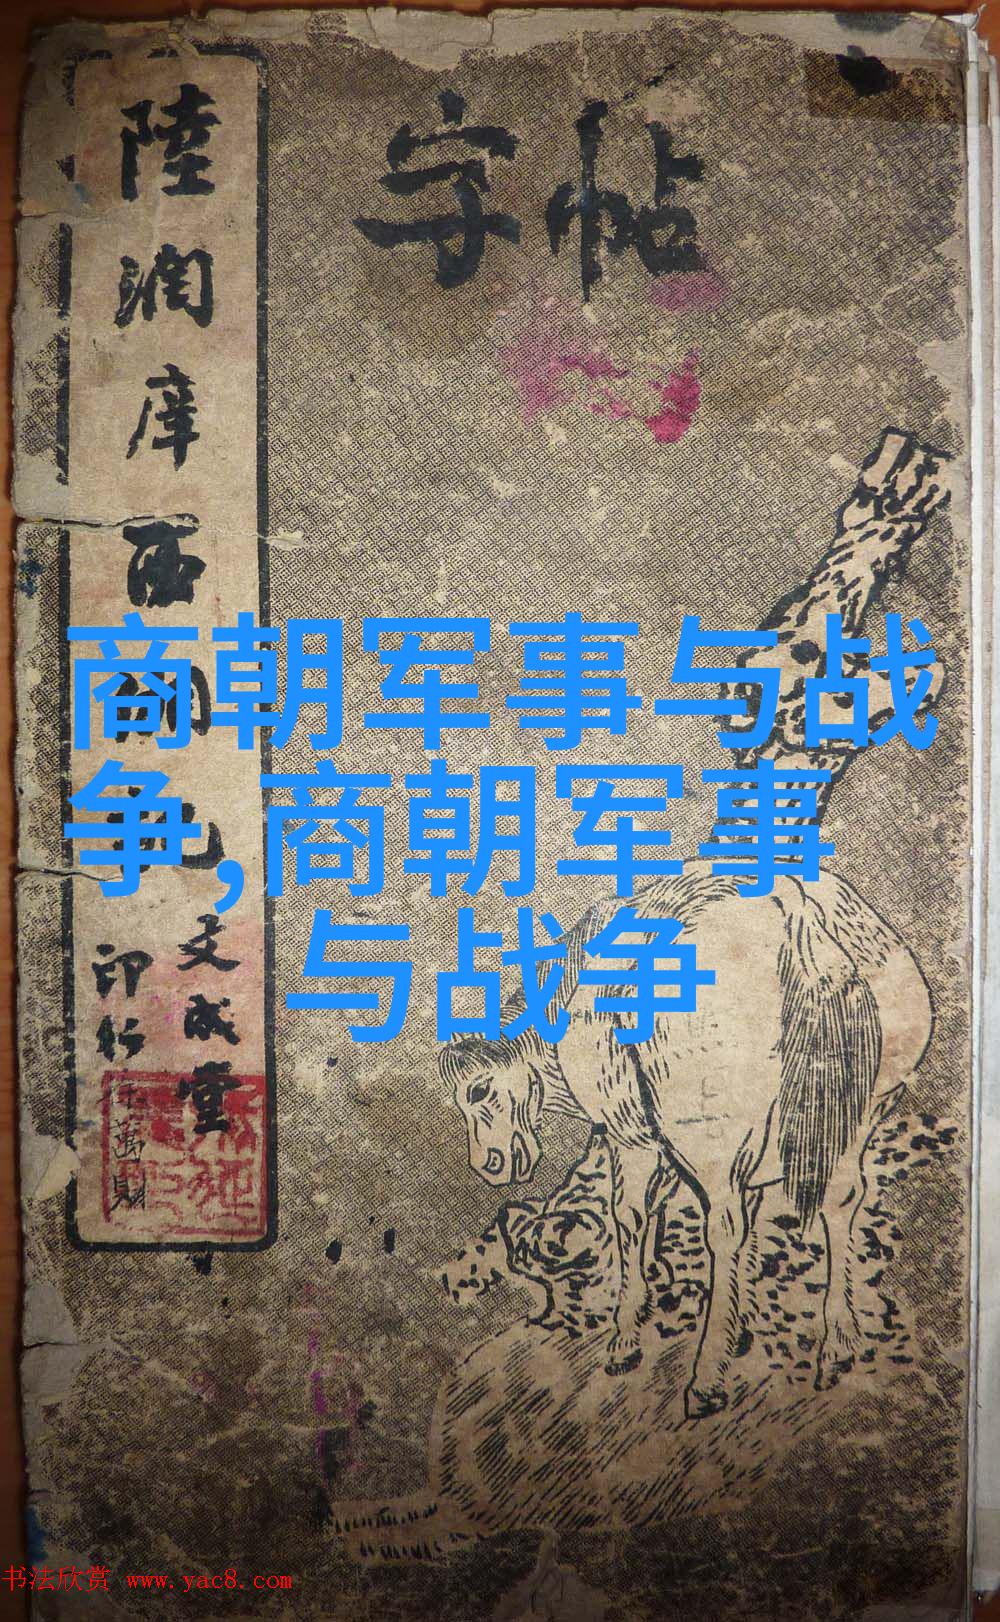 字帖
陸潤庠西湖記
文成堂
印行
徐萬財
商朝军事与战
争,商朝军事
与战争
书法欣赏 www.yac8.com